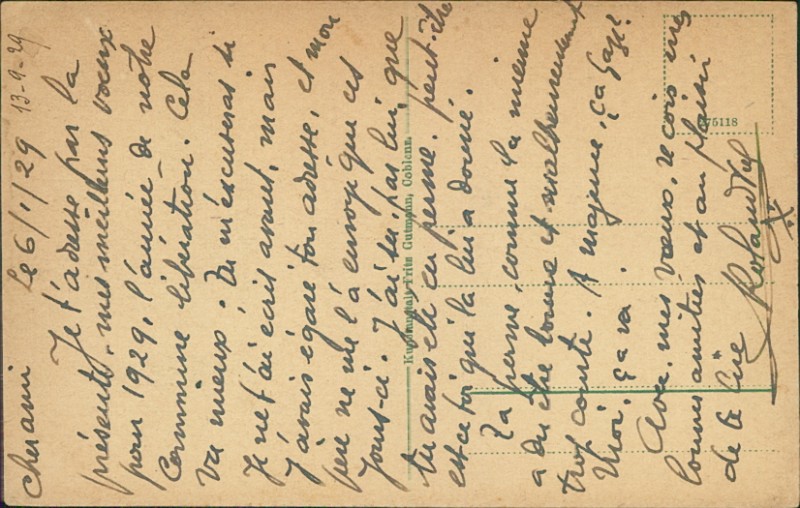 Le 6/1/29 13-9-29
Cher ami
Je t'adresse par la
présente, mes meilleurs voeux
pour 1929, l'année de notre
commune libération. Cela
va mieux. Tu m'excuseras si
je ne t'ai écrit avant, mais
j'avais égaré ton adresse, et mon
père ne me l'a envoyé que ces
jours-ci. J'ai su, par lui, que
tu avais été en perme. peut-être
est-ce toi qui la lui a donné.
Ta perme, comme la mienne
a du être bonne et malheureusement
trop courte. A Mayence, ça gaze?
Moi, ça va.
Avec mes voeux, reçois mes
bonnes amitiés et au plaisir
de te lire
Roland
Kunstanstalt Fritz Gutmann, Coblenz.
75118